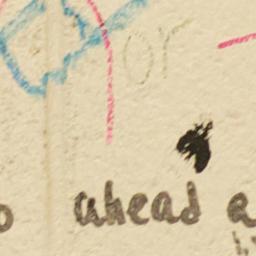 or
o ahead a